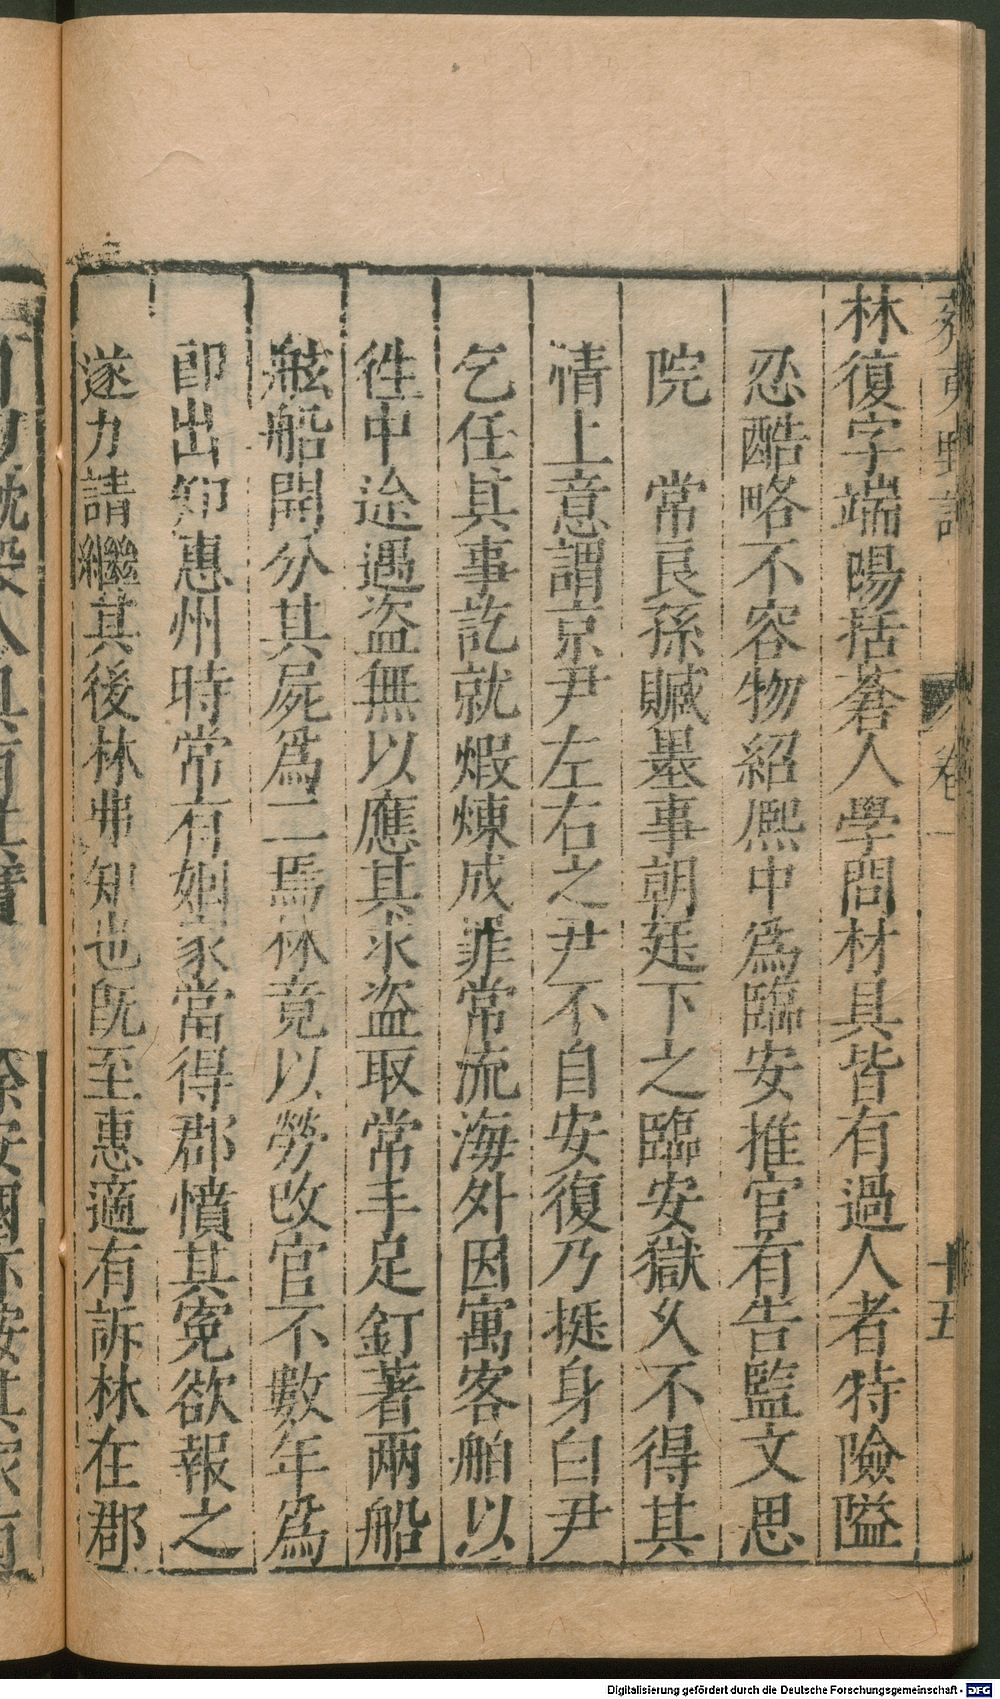 林復字端陽括蒼人學問材具皆有過人者特險隘
忍酷略不容物紹熈中爲臨安推官有告監文思
院 常良孫贓墨事朝廷下之臨安獄乆不得其
情上意謂京尹左右之尹不自安復乃挺身白尹
乞任其事訖就煆煉成罪常流海外因寓客舶以
徃中途遇盗無以應其求盗取常手足釘著兩船
舷船開分其屍爲二焉林竟以勞改官不數年爲
郎出知惠州時常有姻家當得郡憤其寃欲報之
遂力請繼其後林弗知也旣至惠適有訴林在郡
卷一
十五
Digitalisierung gefördert durch die Deutsche Forschungsgemeinschaft - DFG